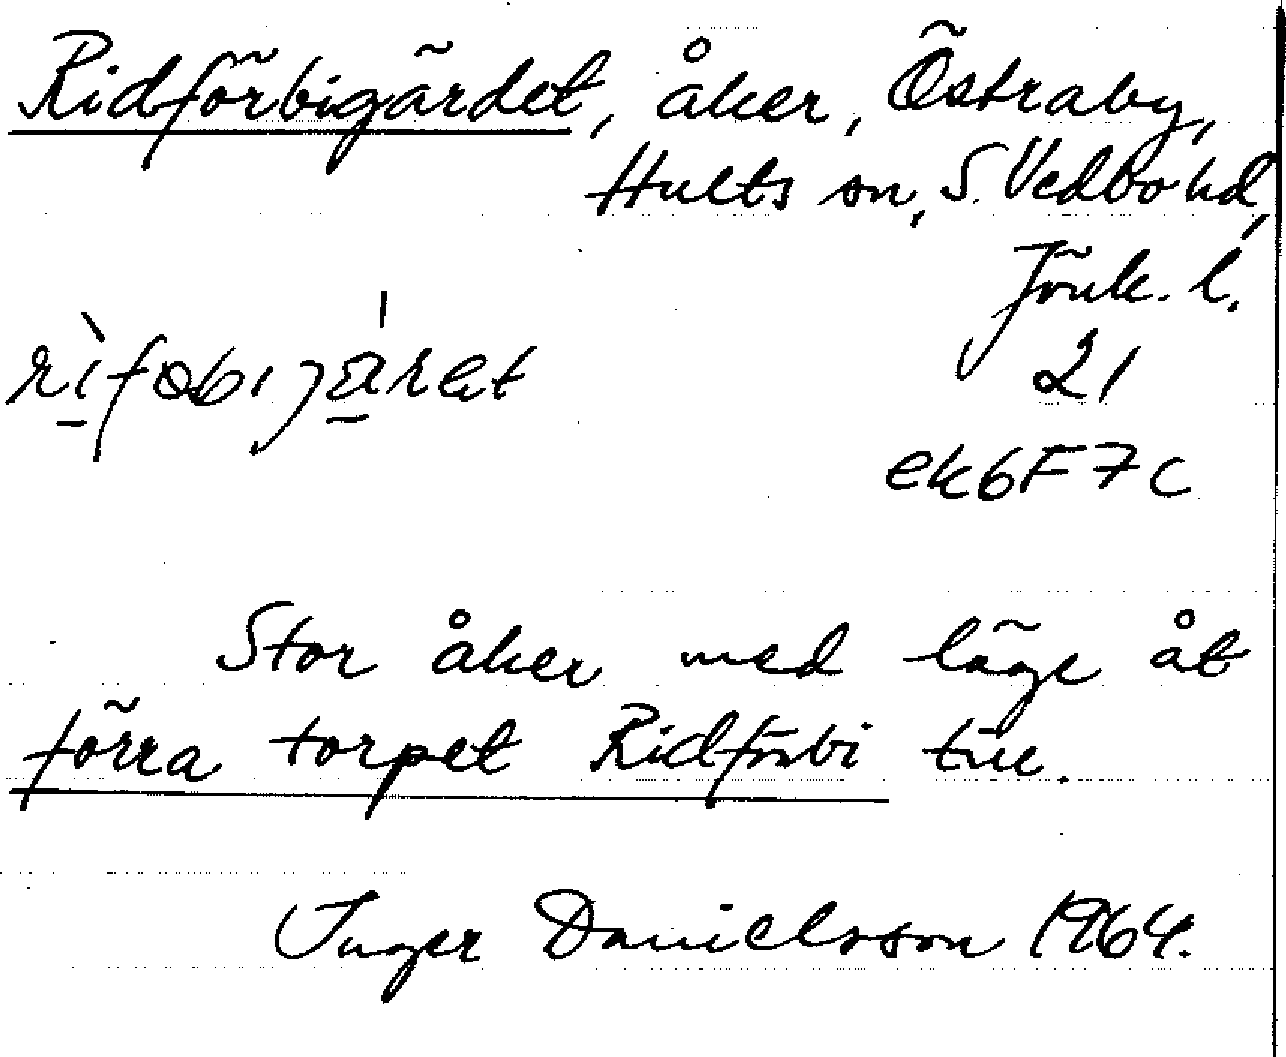 Ridförbigärdet, åker, Östraby,
Hults sn, S. Vedbo hd,
Jönk. l.
21
ek6F7c
Stor åker med läge åt
förra torpet Ridförbi till.
Inger Danielsson 1964.